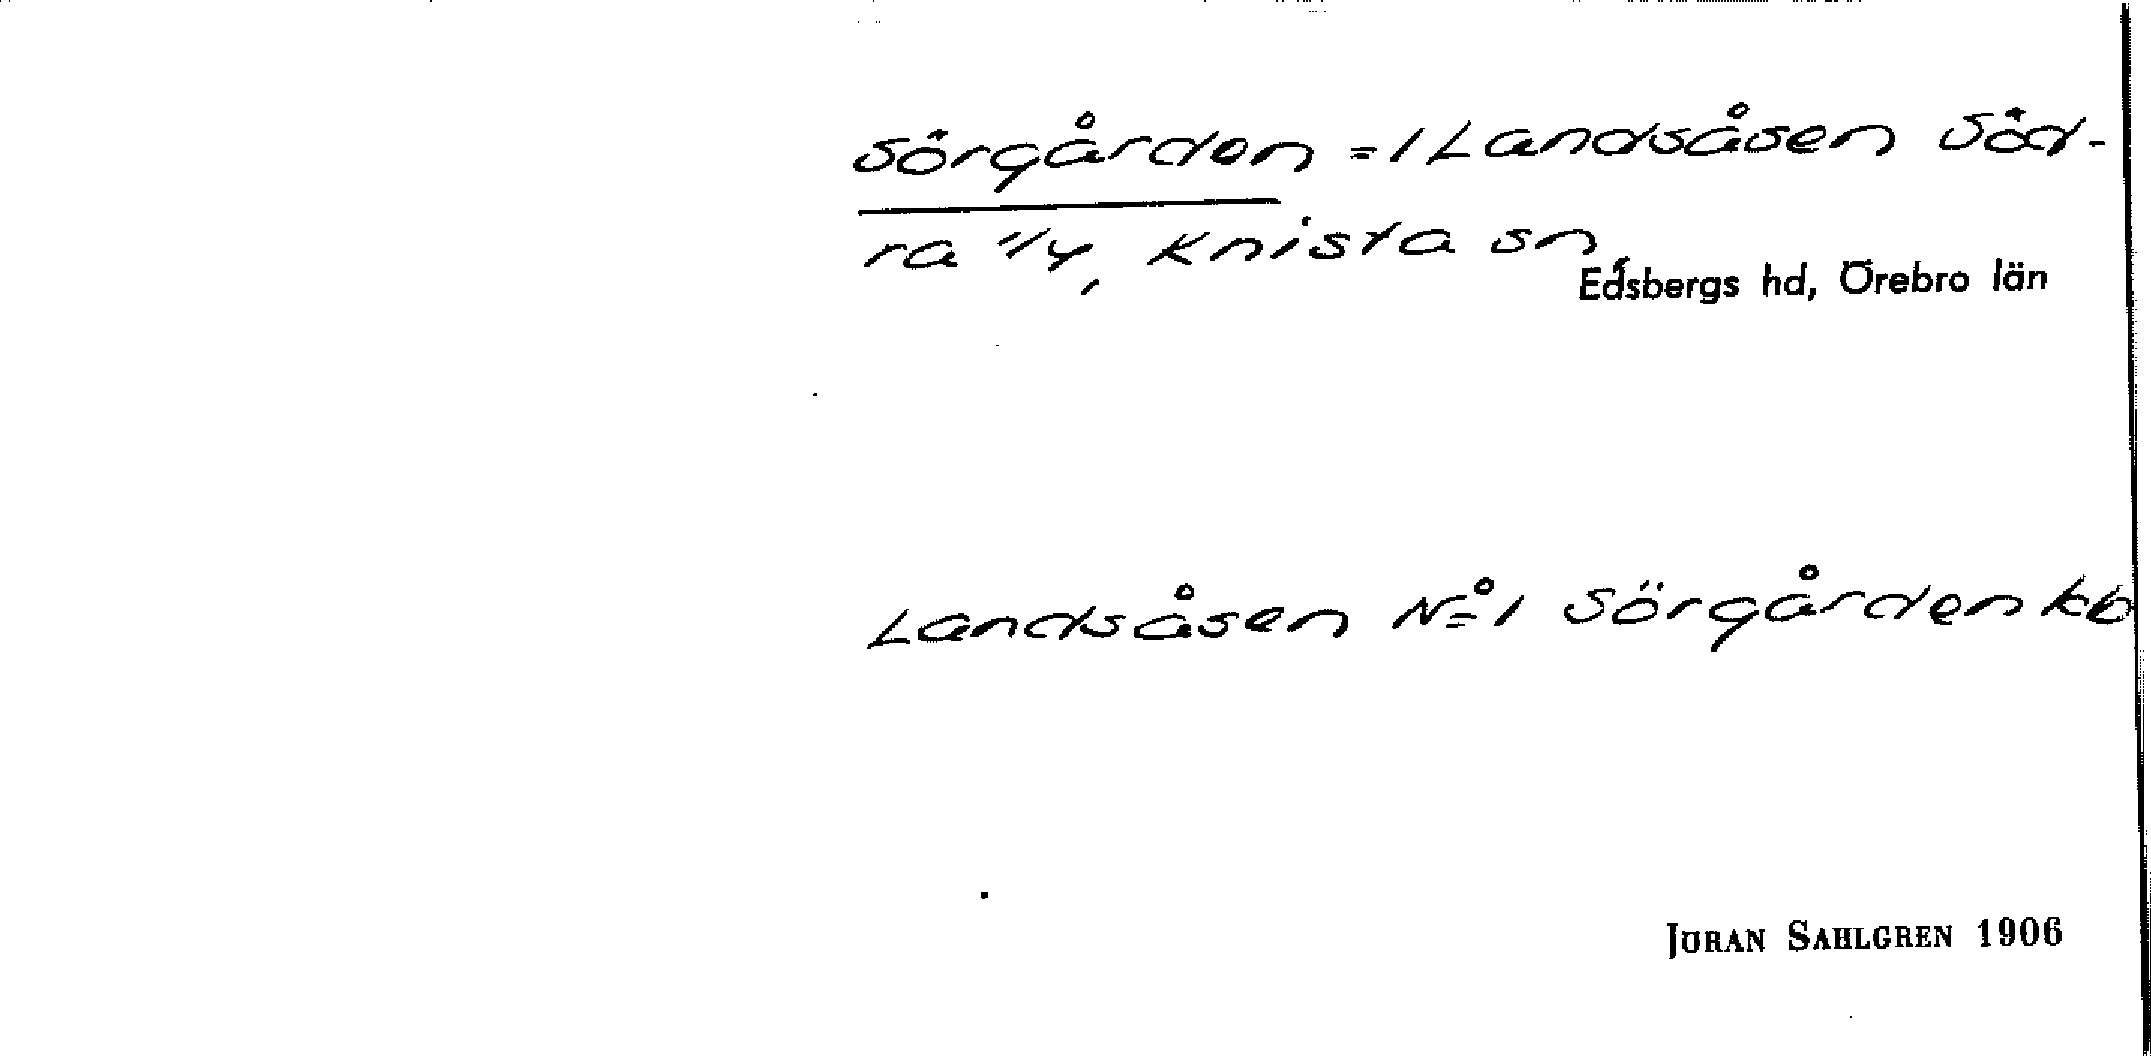 Sörgården = 1 Landsåsen Söd-
ra 1/4, Knista sn,
Edsbergs hd, Örebro län
Landsåsen No 1 Sörgården kb
JÖRAN SAHLGREN 1906